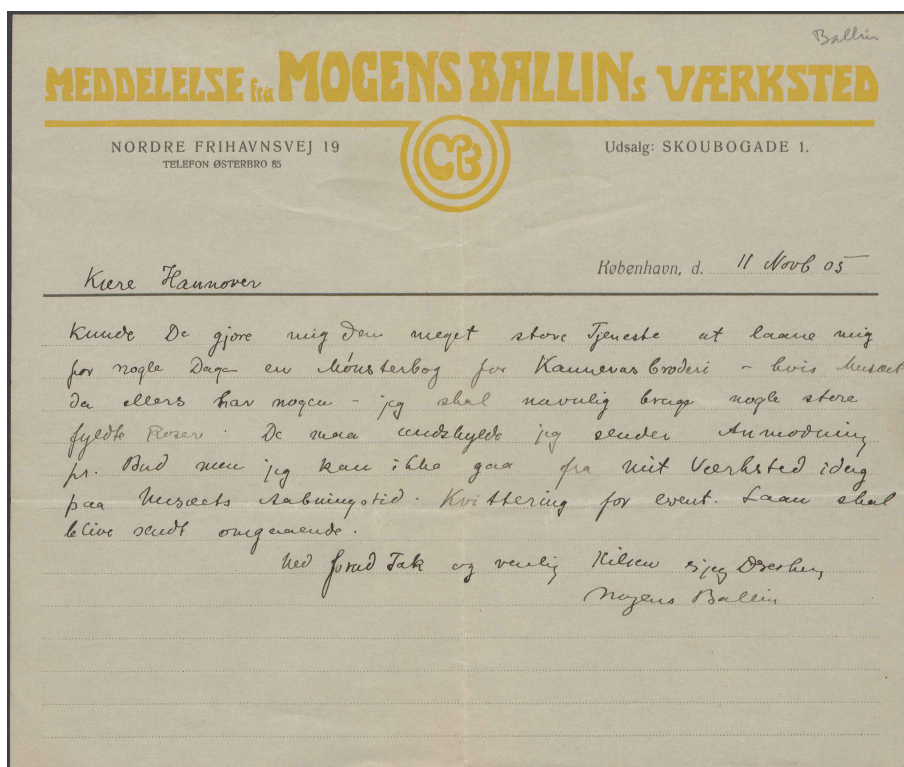 Ballin
MEDDELELSE fra MOGENS BALLINs VÆRKSTED
NORDRE FRIHAVNSVEJ 19
TELEFON ØSTERBRO 85
MB
Udsalg: SKOUBOGADE 1.
København, d. 11 Novb 05
Kære Hannover
Kunde De gjøre mig den meget store Tjeneste at laane mig
for nogle Dage en Mønsterbog for Kannevasbroderi – hvis Musæet
da ellers har nogen – jeg skal navnlig bruge nogle store
fyldte Roser. De maa undskylde jeg sender Anmodning
pr. Bud men jeg kan ikke gaa fra mit Værksted idag
paa Musæets Aabningstid. Kvittering for event. Laan skal
blive sendt omgaaende.
Med forud Tak og venlig Hilsen er jeg Deres
Mogens Ballin